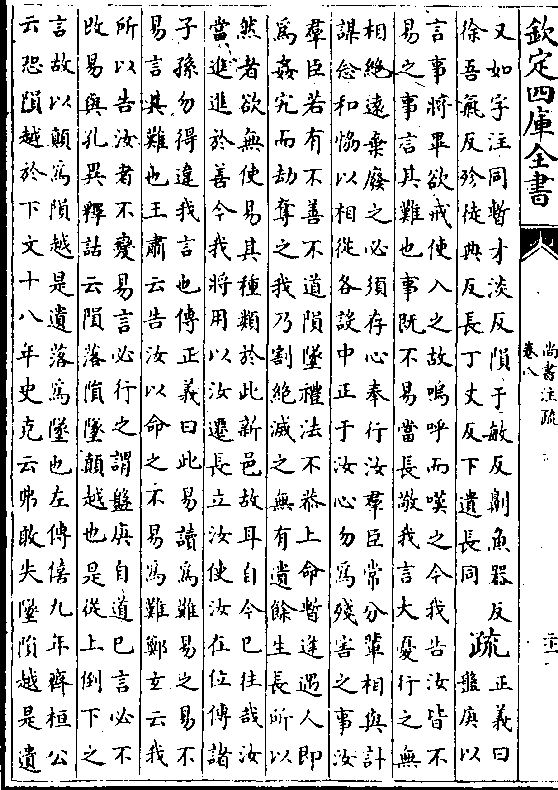 欽定四庫全書
尚書注疏
卷八
又如字注同暫才淡反隕于敏反劓魚器反
徐吾氣反殄徒典反長丁丈反下遺長同
疏
正義曰
盤庚以
言事將畢欲戒使入之故嗚呼而嘆之今我告汝皆不
易之事言其難也事既不易當長敬我言大憂行之無
相絶遠棄廢之必須存心奉行汝羣臣常分輩相與計
謀念和協以相從各設中正于汝心勿為殘害之事汝
羣臣若有不善不道隕墜禮法不恭上命暫逢遇人即
為姦宄而劫奪之我乃割絶滅之無有遺餘生長所以
然者欲無使易其種類於此新邑故耳自今已往哉汝
當進進於善今我將用以汝遷長立汝使汝在位傳諸
子孫勿得違我言也傳正義曰此易讀為難易之易不
易言其難也王肅云告汝以命之不易為難鄭𤣥云我
所以告汝者不變易言必行之謂盤庚自道已言必不
改易與孔異釋詁云隕落隕墜顛越也是從上倒下之
言故以顛為隕越是遺落為墜也左傳僖九年齊桓公
云恐隕越於下文十八年史克云弗敢失墜隕越是遺